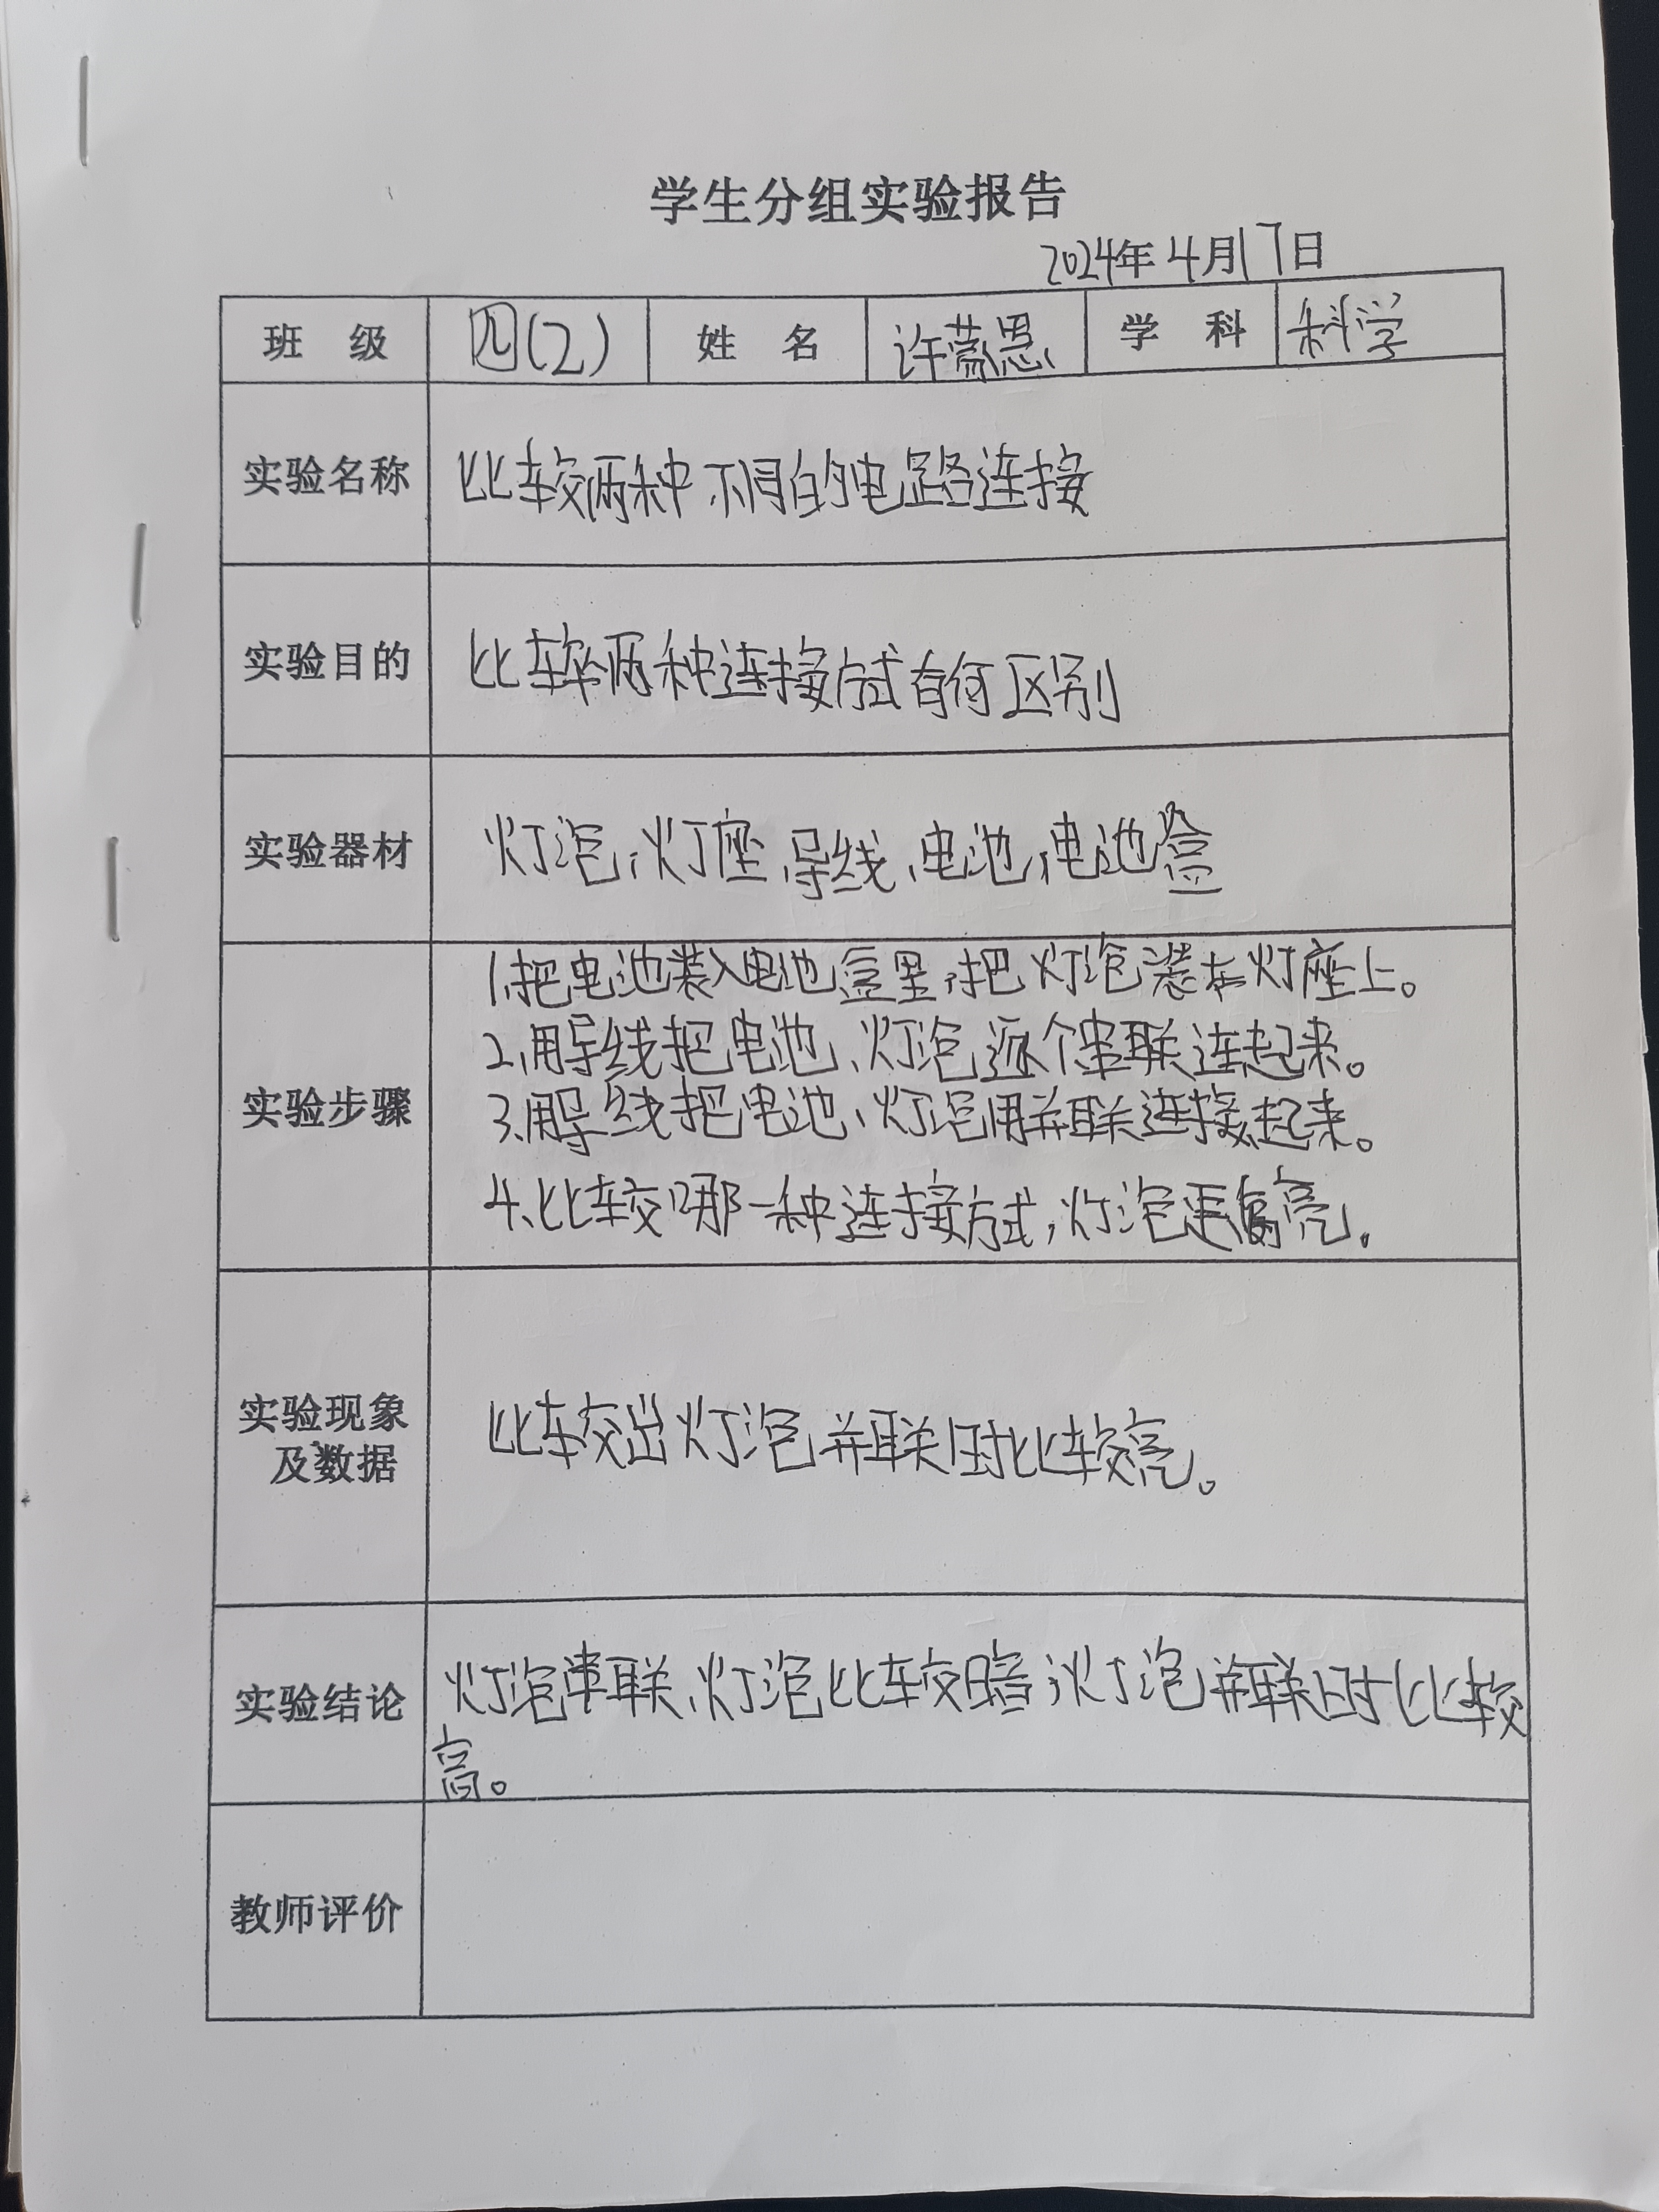 学生分组实验报告
2024年4月17日
班 级 四(2) 姓 名 许蒙恩 学 科 科学
实验名称 比较两种不同的电路连接
实验目的 比较两种连接方式有何区别
实验器材 灯泡、灯座、导线、电池、电池盒
1.把电池装入电池盒里,把灯泡装在灯座上。
2.用导线把电池、灯泡逐个串联连起来。
实验步骤 3.用导线把电池、灯泡用并联连接起来。
4.比较哪一种连接方式,灯泡更亮。
实验现象
及数据 比较出灯泡并联时比较亮。
实验结论 灯泡串联、灯泡比较暗;灯泡并联时比较
高。
教师评价